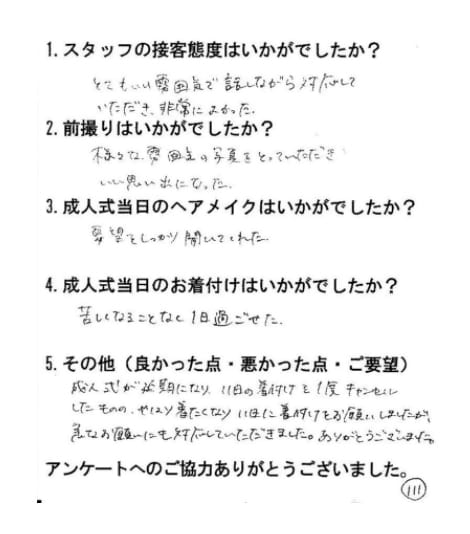 1. スタッフの接客態度はいかがでしたか？
とてもいい雰囲気で話しながら対応して
いただき、非常によかった。
2. 前撮りはいかがでしたか？
様々な雰囲気の写真をとっていただき
いい思い出になった。
3. 成人式当日のヘアメイクはいかがでしたか？
要望をしっかり聞いてくれた。
4. 成人式当日のお着付けはいかがでしたか？
苦しくなることなく1日過ごせた。
5. その他（良かった点・悪かった点・ご要望）
成人式が延期になり、11日の着付けを1度キャンセル
したものの、やはり着たくなり11日に着付けをお願いしましたが、
急なお願いにも対応していただきました。ありがとうございました。
アンケートへのご協力ありがとうございました。
111